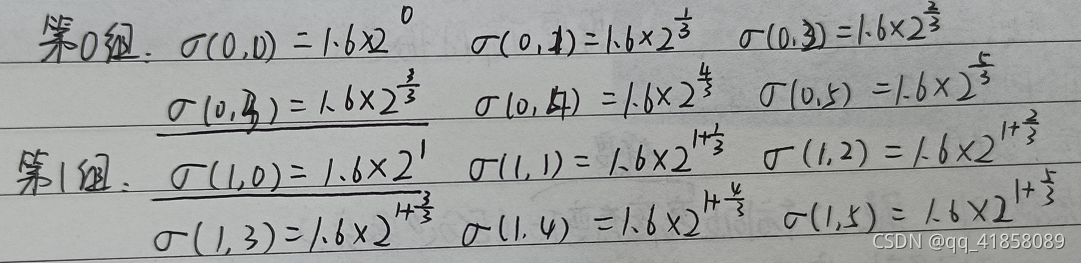 第0组: σ(0,0) = 1.6×2^0 σ(0,1) = 1.6×2^{1/3} σ(0,2) = 1.6×2^{2/3}
σ(0,3) = 1.6×2^{3/3} σ(0,4) = 1.6×2^{4/3} σ(0,5) = 1.6×2^{5/3}
第1组: σ(1,0) = 1.6×2^1 σ(1,1) = 1.6×2^{1+1/3} σ(1,2) = 1.6×2^{1+2/3}
σ(1,3) = 1.6×2^{1+3/3} σ(1.4) = 1.6×2^{1+4/3} σ(1,5) = 1.6×2^{1+5/3}
CSDN @qq_41858089